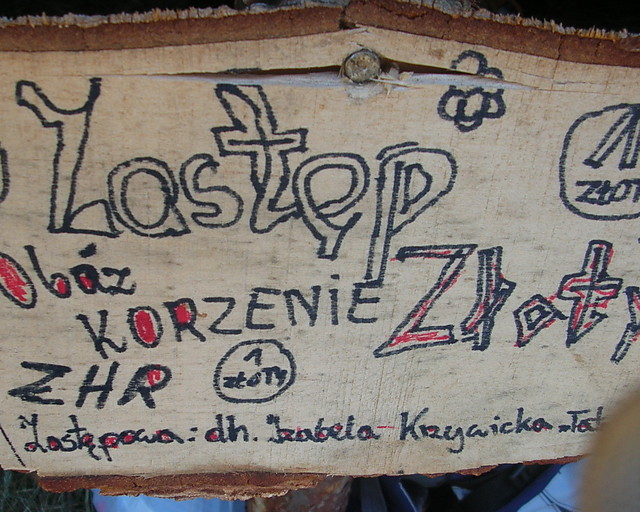 Zastęp
1 ZŁOTY
Obóz
KORZENIE
Złoty
ZHR
1 ZŁOTY
Zastępowa: dh. Izabela Krzywicka